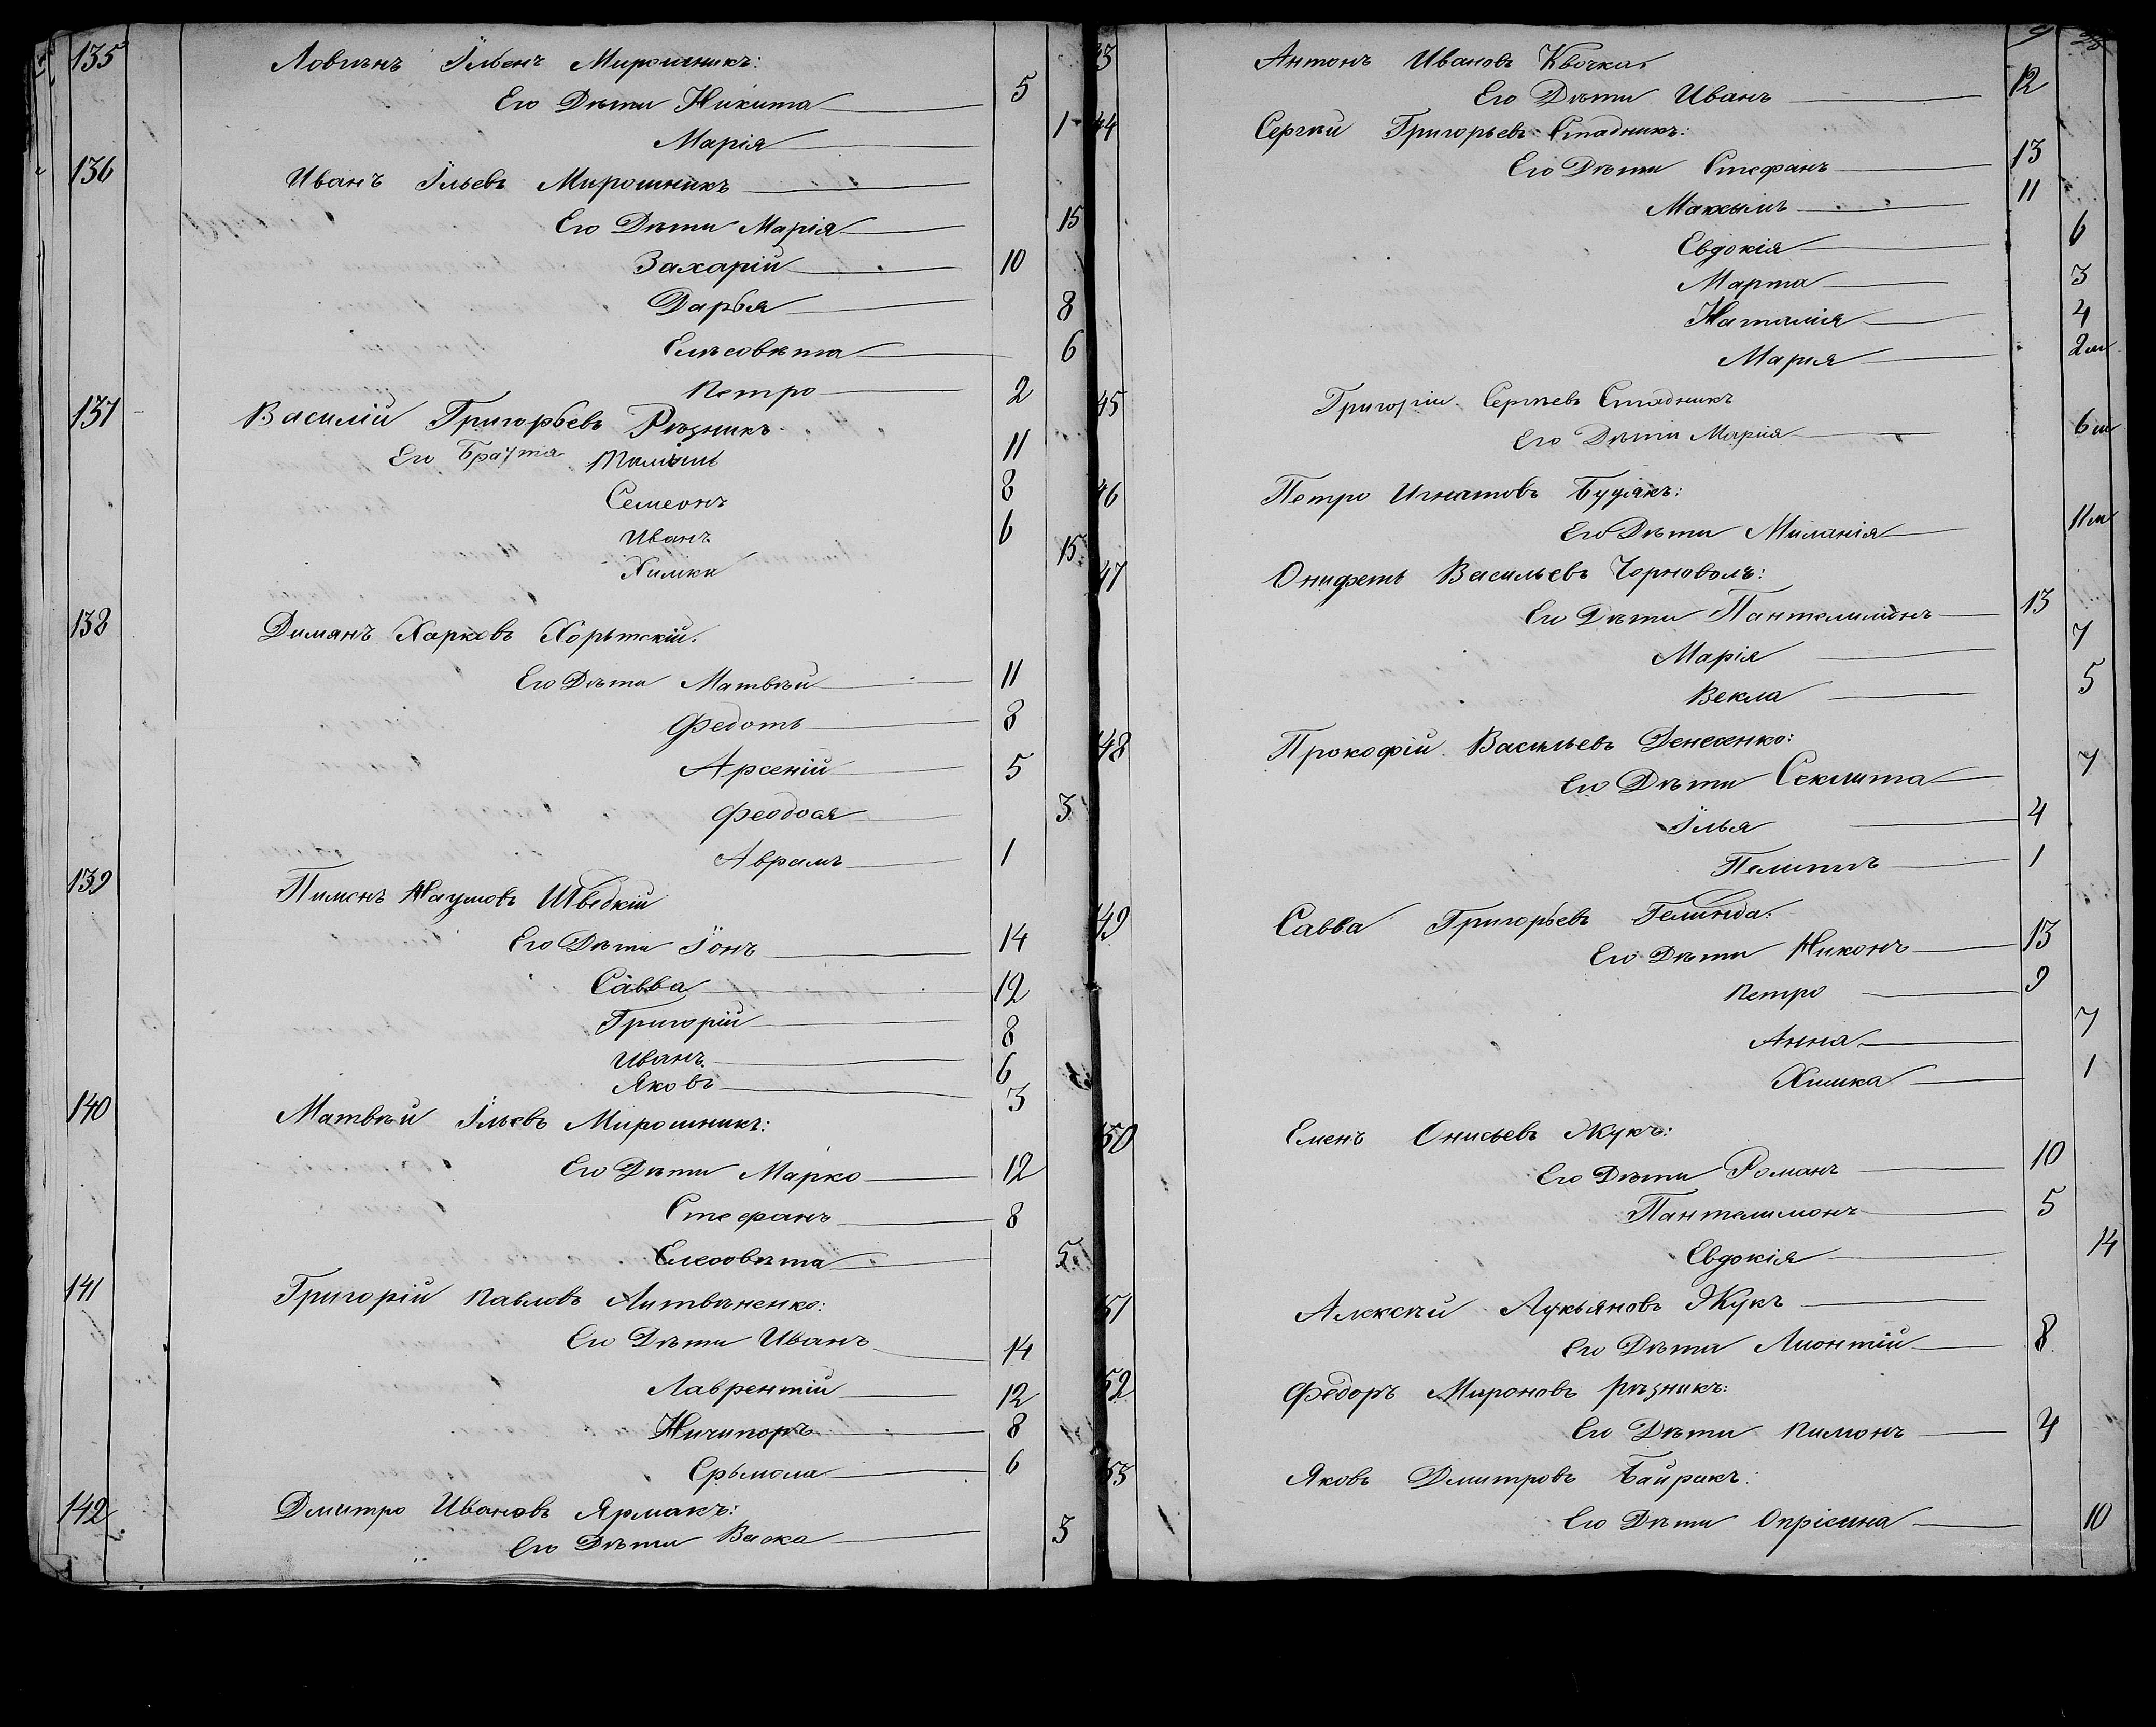 135 Ловинъ Ільенъ Мирошникъ:
Его Дѣти Никита 5
Марія 1
136 Иванъ Ільевъ Мирошникъ
Его Дѣти Марія 15
Захарій 10
Дарья 8
Елисовѣта 6
Петро 2
137 Василій Григорьевъ Рѣзникъ
Его Братья 11
Семеонъ 8
Иванъ 6
Химка 15
138 Димянъ Харковъ Хорытскій.
Его Дѣти Матвѣй 11
Федотъ 8
Арсеній 5
Феодося 3
Аврамъ 1
139 Пименъ Наумовъ Шведкій
Его Дѣти Іонъ 14
Савва 12
Григорій 8
Иванъ 6
Яковъ 3
140 Матвѣй Ільевъ Мирошникъ:
Его Дѣти Марко 12
Стефанъ 8
Елесовѣта 5
141 Григорій Павловъ Литвѣненко:
Его Дѣти Иванъ 14
Лаврентій 12
Ничипоръ 8
Ермола 6
142 Дмитро Ивановъ Ярмакъ:
Его Дѣти Васка 3
9
43 Антонъ Ивановъ Квочка.
Его Дѣти Иванъ 12
44 Сергѣй Григорьевъ Стадникъ:
Его Дѣти Стефанъ 13
Максымъ 11
Евдокія 6
Марта 3
Наталія 4
Марія 2м
45 Григорій Сергѣевъ Стадникъ
Его Дѣти Марія 6м
46 Петро Игнатовъ Будякъ:
Его Дѣти Миланія 11м
47 Онифетъ Васильевъ Чорноволъ:
Его Дѣти Пантелимонъ 13
Марія 7
Векла 5
148 Прокофій Васильевъ Денесенко:
Его Дѣти Секлита 7
Ілья 4
Пелипъ 1
149 Савва Григорьевъ Гелинда:
Его Дѣти Никонъ 13
Петро 9
Анна 7
Химка 1
150 Еменъ Онисьевъ Жукъ:
Его Дѣти Романъ 10
Пантелимонъ 5
Евдокія 14
151 Алексѣй Лукьяновъ Жукъ
Его Дѣти Лионтій 8
152 Федоръ Мироновъ Рѣзникъ:
Его Дѣти Пимонъ 4
153 Яковъ Дмитровъ Байракъ:
Его Дѣти Опрісина 10